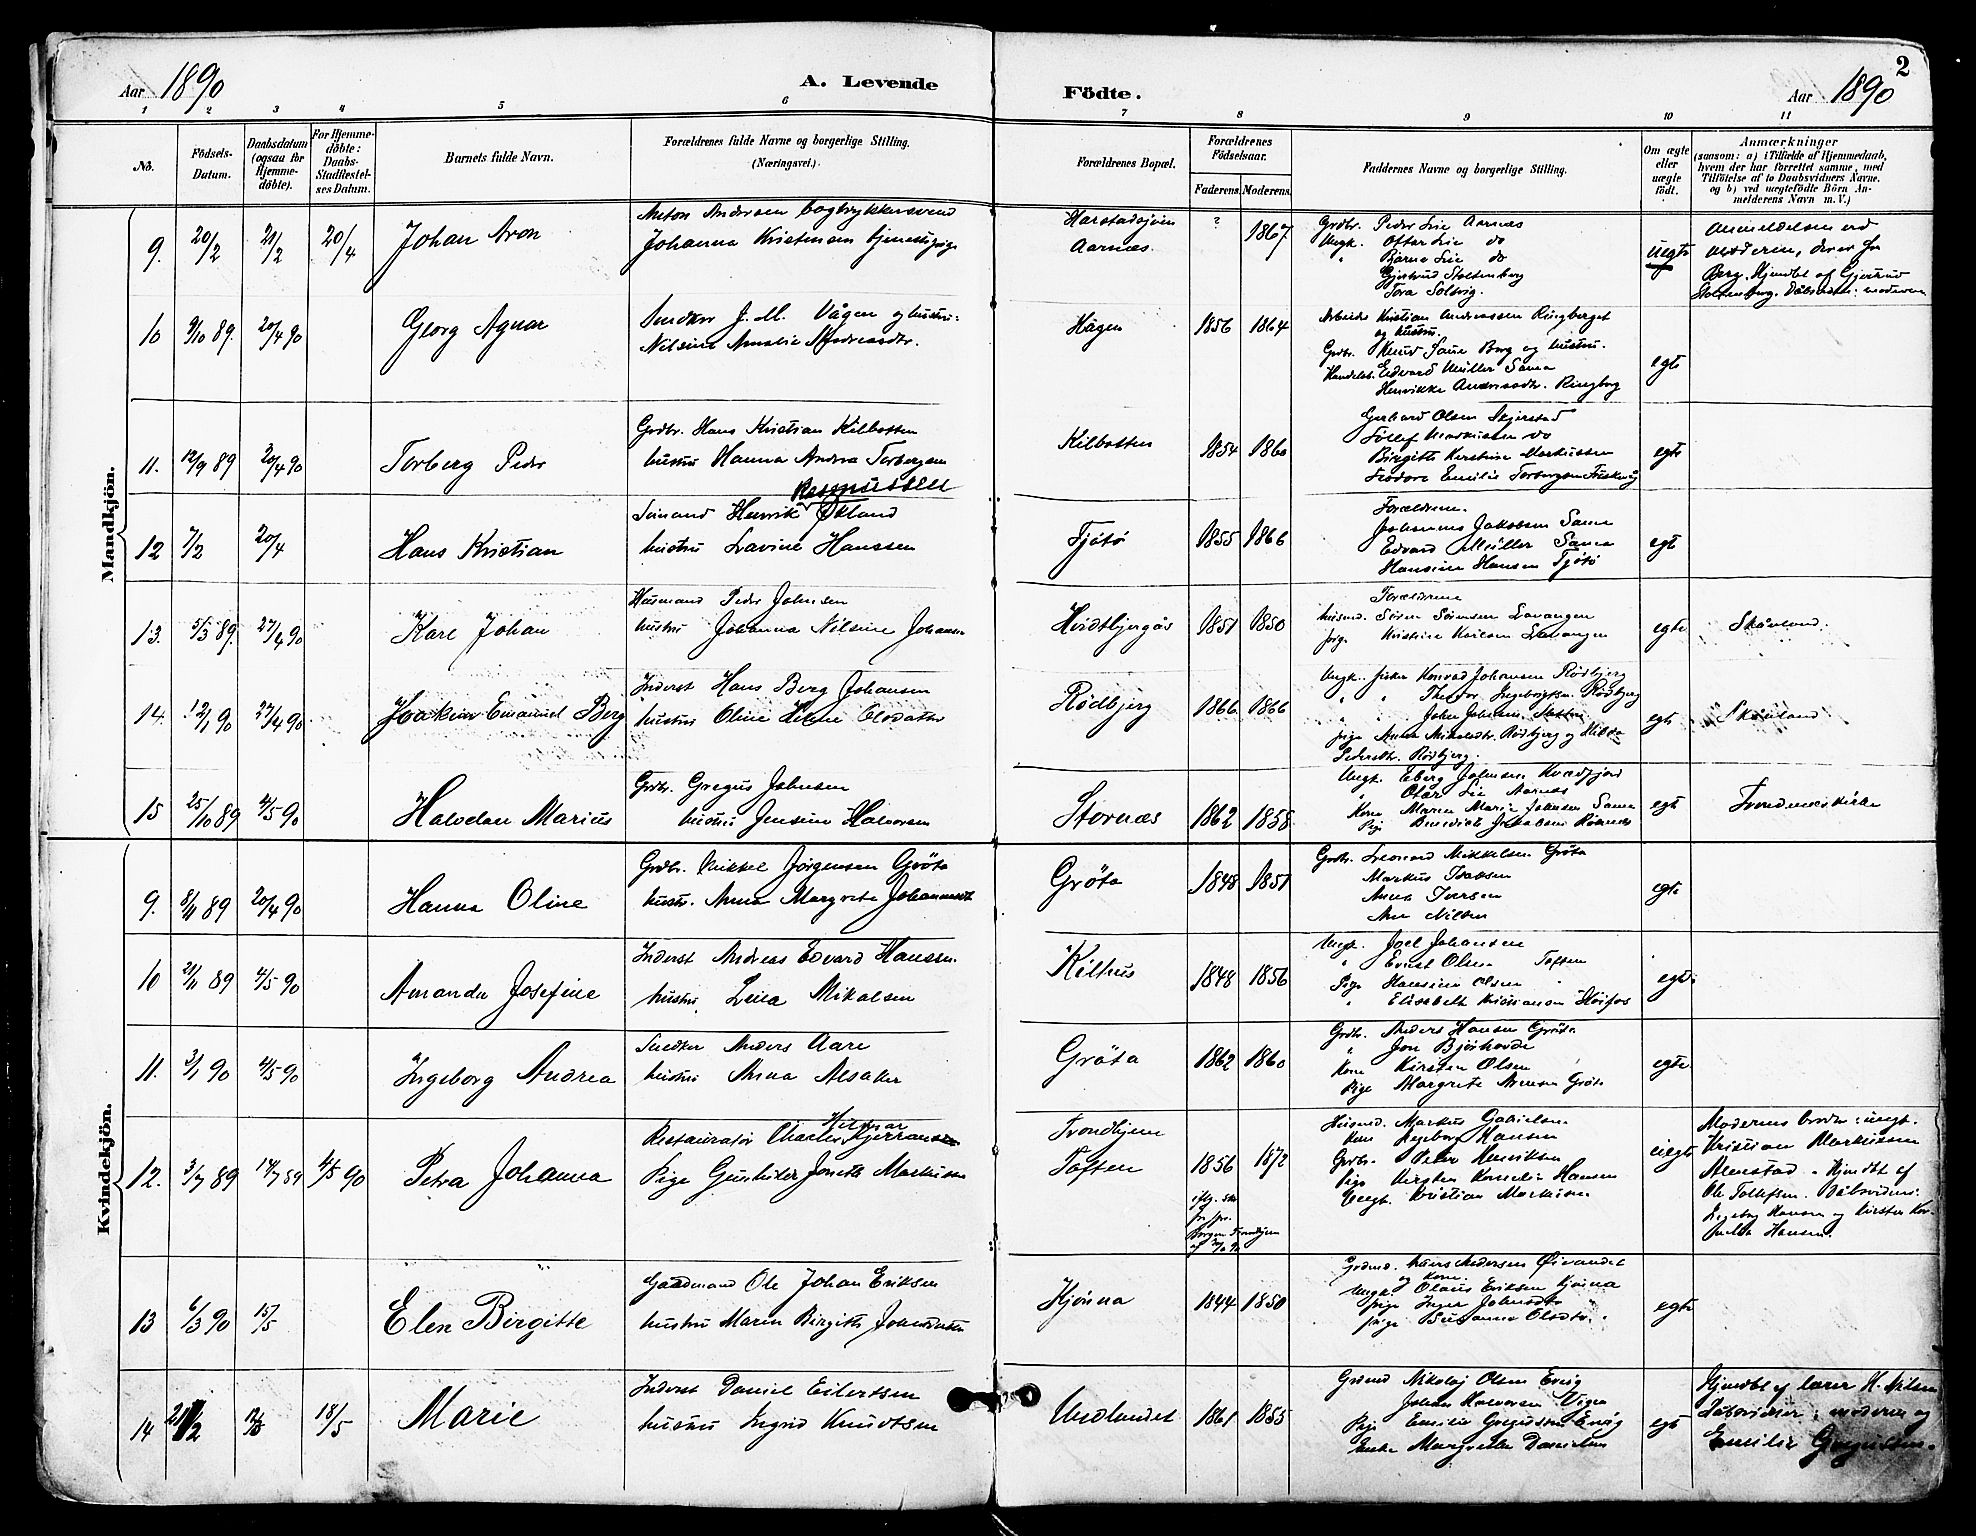 2
Aar 1890
A. Levende Födte.
Aar 1890
1 2 3 4 5 6 7 8 9 10 11
No.
Födsels-Datum.
Daabsdatum (ogsaa for Hjemme-döbte).
For Hjemme-döbte: Daabs-Stadfæstel-ses Datum.
Barnets fulde Navn.
Forældrenes fulde Navne og borgerlige Stilling. (Næringsvei.)
Forældrenes Bopæl.
Forældrenes Födselsaar.
Faderens.
Moderens.
Faddernes Navne og borgerlige Stilling.
Om ægte eller uægte födt.
Anmærkninger
(saasom: a) i Tilfælde af Hjemmedaab, hvem der har forrettet samme, med Tilföielse af to Daabsvidners Navne. og b) ved uægtefödte Börn An-melderens Navn m. V.)
Mandkjön.
9. 20/2 21/2 20/4 Johan Aron
Anton Andersen bogtrykkersvend
Johanna Kristensen tjenestepige
Harstadsjøen
Aarnæs.
? 1867
Grdbr. Peder Lie Aarnæs
Ungk. Ottar Lie do
" Bjarne Lie do
Gjertrud Stoltenberg
Tora Solvig.
uegte
Anmeldelsen ved
moderen,
Berg. Hjmdbt af Gjertrud
Stoltenberg. Dåbsvidn: moderen
10 9/10 89. 20/4 90 Georg Agnar
Snedker J. M. Vågen og hustru:
Nilsine Amalie Andreasdtr.
Hågen
1856 1864
Arbeider Kristian Andreassen Ringberget
og hustru.
Grdbr. Knud Sama Berg og hustru.
Handelsb. Edvard Müller Sama
Henrikke Andreasdtr. Ringberg
egte
11. 12/9 89 20/4 90 Torberg Peder
Grdbr. Hans Kristian Kilbotten
hustru Hanna Andrea Torbergsen
Kilbotten
1854 1860
Gerhard Olsen Skjerstad
Tollef Markussen do
Birgitte Kirstine Markussen
Teodore Emilie Torbergsen
egte
12 7/2 20/4 Hans Kristian
Rasmussen
Sømand Henrik Økland
hustru Lavine Hanssen
Tjötö
1855 1866
Forældrene.
Johannes Jakobsen Sama
Edvard Müller Sama
Hansine Hansen Tjötö
egt
13. 5/3 89. 27/4 90 Karl Johan
Husmand Peder Johnsen
hustru Johanna Nilsine Johansen
Hvidtbjergås
1851 1850
Forældrene
husmd. Sören Sörensen Lavangen
pige Kristine Karlsen Lavangen
egte
Skånland.
14. 12/1 90 27/4 90 Joakim Emanuel Berg
Inderst Hans Berg Johansen
hustru Oline Helene Olsdatter
Rödbjerg
1866 1866
Ungk. fisker Konrad Johansen Rödbjerg
" " Theodor Ingebrigtsen Rödbjerg
" " John Johnsen
pige Anna Mikalsdtr. Rödbjerg og Hilda
Pedersdtr. Rödbjerg.
egte
Skånland
15 25/10 89 4/5 90 Halvdan Marius
Grdbr. Gregus Johnsen
hustru Jensine Halvorsen
Stornæs
1862 1858.
Ungk. Eberg Johnsen Kvædfjord
Otar Lie Aarnæs
Kone Maren Marie Johnsen Sama
Pige Benedikte Jakobsen
egt
Trondenæs kirke
Kvindekjön.
9. 8/11 89 20/4 90 Hanna Oline
Grdbr. Mikkel Jörgensen Gröta
hustr. Anna Margrete Johannesdt
Gröta
1848 1851
Grdbr. Leonard Mikkelsen Gröta
Markus Isaksen
Anna Iversen
Ane Nilsen
egte
10 21/11 89 4/5 90 Amanda Josefine
Inderst Andreas Edvard Hanssen
hustru Lena Mikalsen
Kilhus
1848 1856
Ungk. Joel Johansen
" Ernst Olsen Toften
Pige Hansine Olsen "
" Elisabeth Kristiansen Höifos
egte
11. 3/1 90 4/5 90 Ingeborg Andrea
Snedker Anders Aare
hustru Anna Alsaker
Gröta
1862 1860
Grdbr. Anders Hansen Gröta
" Jon Bjørhovde
Kone Kirsten Olsen
Pige Margrete Amensen Gröta
egte
12. 3/7 89 14/7 89 4/5 90 Petra Johanna
Hilmar
Restauratör Charles Kjerransen
Pige Gunhilde Janette Markussen
Trondhjem
Toften
1856 1872
Husmd. Markus Gabrielsen
Kone Ingeborg Hansen
Grdbr. Peter Henriksen
Pige Kirsten Kornelia Hansen
Ungk. Kristian Markussen
uegte
Moderens broder: ungk.
Kristian Markussen
Almestad. Hjmdbt af
Ole Tollefsen. Dåbsvidner:
Ingeborg Hansen og Kirsten Kor-
nelia Hansen.
13 6/3 90 15/5 Elen Birgitte
Gaardmand Ole Johan Eriksen
hustru Maren Birgitte Johansdatter
Kjönna
1844 1850
Grdmd. Andersen Öivandet
og Kone.
Ungk. Olaus Eriksen Kjönna
pige Inger Johnsdtr
pige Susanna Olsdtr.
egte
14 21/2 18/5 Marie
Inderst Daniel Eilertsen
hustru Ingrid Knudtsen
Undlandet
1861 1855
Grdmd Mikolaj Olsen Evig
Johan Halvorsen Vigen
Pige Emilie Gregussen Evig
Enke Margrethe Danielsen
egt
Hjmdbt af lærer H. Nilsen
Dåbsvidner: moderen og
Emilie Gregussen.